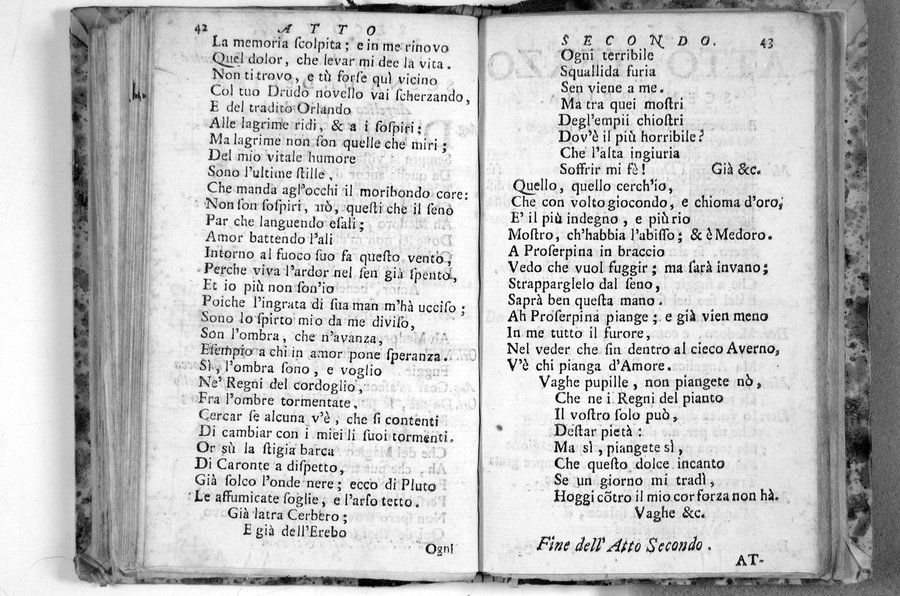 42 ATTO
La memoria ſcolpita; e in me rinovo
Quel dolor, che levar mi dee la vita.
Non ti trovo, e tù forſe quì vicino
Col tuo Drudo novello vai ſcherzando,
E del tradito Orlando
Alle lagrime ridi, & a i ſoſpiri;
Ma lagrime non ſon quelle che miri;
Del mio vitale humore
Sono l'ultime ſtille,
Che manda agl'occhi il moribondo core:
Non ſon ſoſpiri, nò, queſti che il ſeno
Par che languendo eſali;
Amor battendo l'ali
Intorno al fuoco ſuo fa queſto vento,
Perche viva l'ardor nel ſen già ſpento,
Et io più non ſon'io
Poiche l'ingrata di ſua man m'hà ucciſo;
Sono lo ſpirto mio da me diviſo,
Son l'ombra, che n'avanza,
Eſempio a chi in amor pone ſperanza.
Sì, l'ombra ſono, e voglio
Ne' Regni del cordoglio,
Fra l'ombre tormentate,
Cercar ſe alcuna v'è, che ſi contenti
Di cambiar con i miei li ſuoi tormenti.
Or sù la ſtigia barca
Di Caronte a diſpetto,
Già ſolco l'onde nere; ecco di Pluto
Le affumicate ſoglie, e l'arſo tetto.
Già latra Cerbero;
E già dell'Erebo
Ogni
SECONDO. 43
Ogni terribile
Squallida furia
Sen viene a me.
Ma tra quei moſtri
Degl'empii chioſtri
Dov'è il più horribile?
Che l'alta ingiuria
Soffrir mi fè! Già &c.
Quello, quello cerch'io,
Che con volto giocondo, e chioma d'oro,
E' il più indegno, e più rio
Moſtro, ch'habbia l'abiſſo; & è Medoro.
A Proſerpina in braccio
Vedo che vuol fuggir; ma ſarà invano;
Strapparglelo dal ſeno,
Saprà ben queſta mano.
Ah Proſerpina piange; e già vien meno
In me tutto il furore,
Nel veder che ſin dentro al cieco Averno,
V'è chi pianga d'Amore.
Vaghe pupille, non piangete nò,
Che ne i Regni del pianto
Il voſtro ſolo può,
Deſtar pietà:
Ma sì, piangete sì,
Che queſto dolce incanto
Se un giorno mi tradì,
Hoggi cōtro il mio cor forza non hà.
Vaghe &c.
Fine dell' Atto Secondo.
AT-